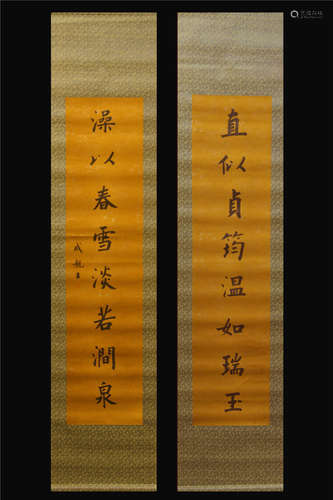 直似貞筠温如瑞玉
澡以春雪淡若澗泉
成親王